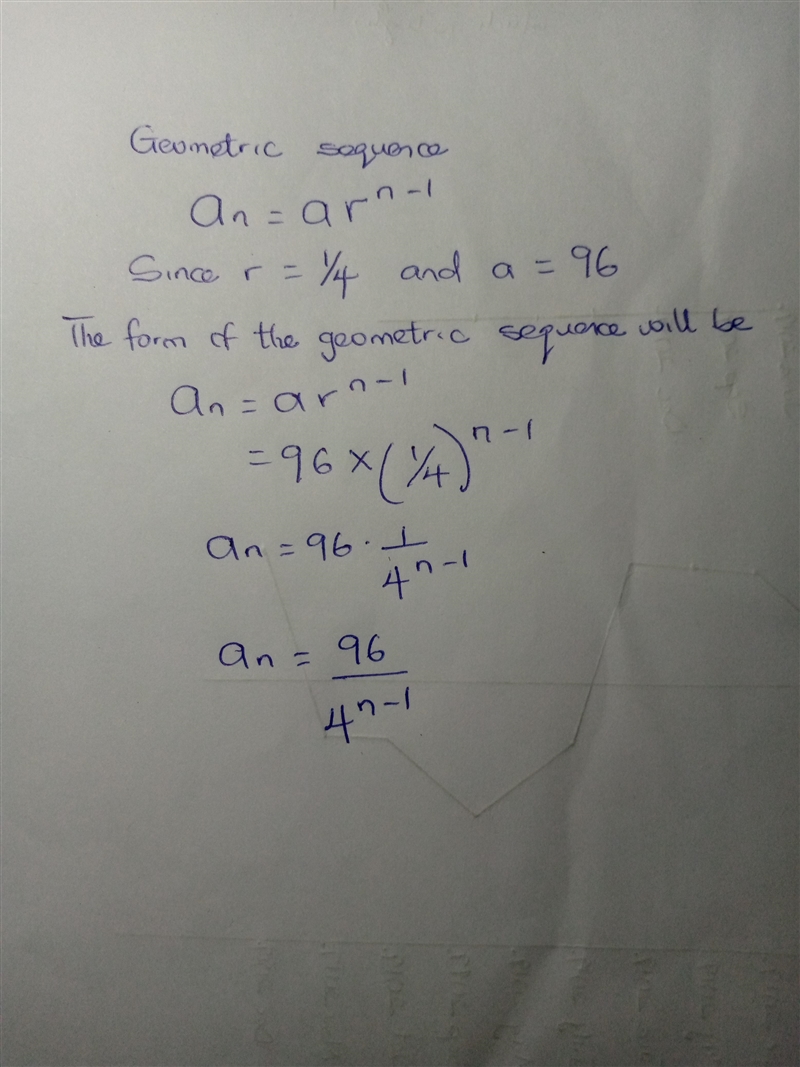 Geometric sequence
an = ar^n-1
Since r = 1/4 and a = 96
The form of the geometric sequence will be
an = ar^n-1
= 96 × (1/4)^n-1
an = 96 · 1/4^n-1
an = 96/4^n-1